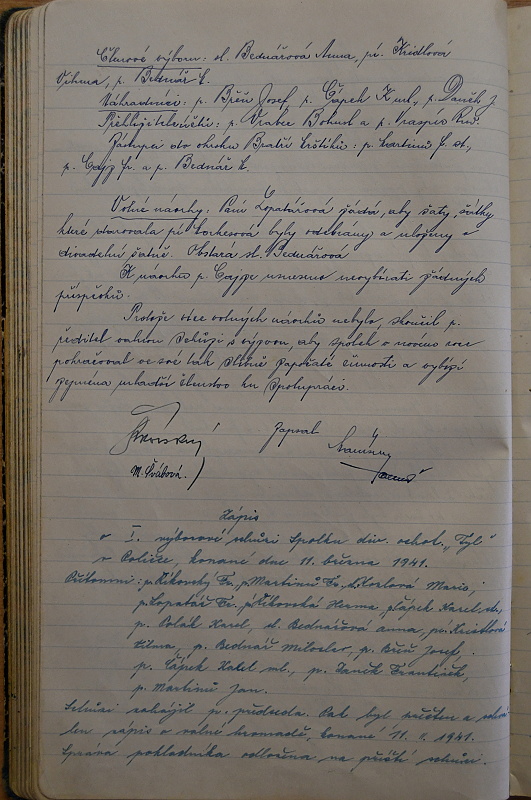 Členové výboru: sl. Bednářová Anna, pí. Křidlová
Vilma, p. Bednář L.
Náhradníci: p. Bříň Josef, p. Čápek K. ml., p. Daněk J.
Přehlížitelé účtů: p. Vrabec Bohusl. a p.
Zástupci do okrsku Bratří Mrštíků: p. Martinů J. st.,
p. Cajz Jr. a p. Bednář L.
Volné návrhy: Paní Lopatářová žádá, aby šaty, šátky
které darovala pí. byly odebrány a uloženy v
divadelní šatně. Obstará sl. Bednářova
K návrhu p. Cajze usneseno nevybírati žádných
příspěvků.
Protože více volných návrhů nebylo, skončil p.
ředitel valnou schůzi s výzvou, aby spolek v novém roce
pokračoval ve své tak slibně započaté činnosti a vybízí
zejména mladší členstvo ku spolupráci.
Zapsal
M. Švábová.
Zápis
o I. výborové schůzi Spolku div. ochot. „Tyl"
v Poličce, konané dne 11. března 1941.
Přítomni: p. Říkovský Fr., p. Martinů Fr., Marie,
p. Lopatář Fr., p. Říkovská Herma, p. Čápek Karel st.,
p. Polák Karel, sl. Bednářová Anna, pí. Křidlová
Vilma, p. Bednář Miloslav, p. Bříň Josef,
p. Čápek Karel ml., p. Daněk František,
p. Martinů Jan.
Schůzi zahájil p. předseda. Pak byl přečten a schvá
len zápis o valné hromadě, konané 11. II. 1941.
Zpráva pokladníka odložena na příští schůzi.